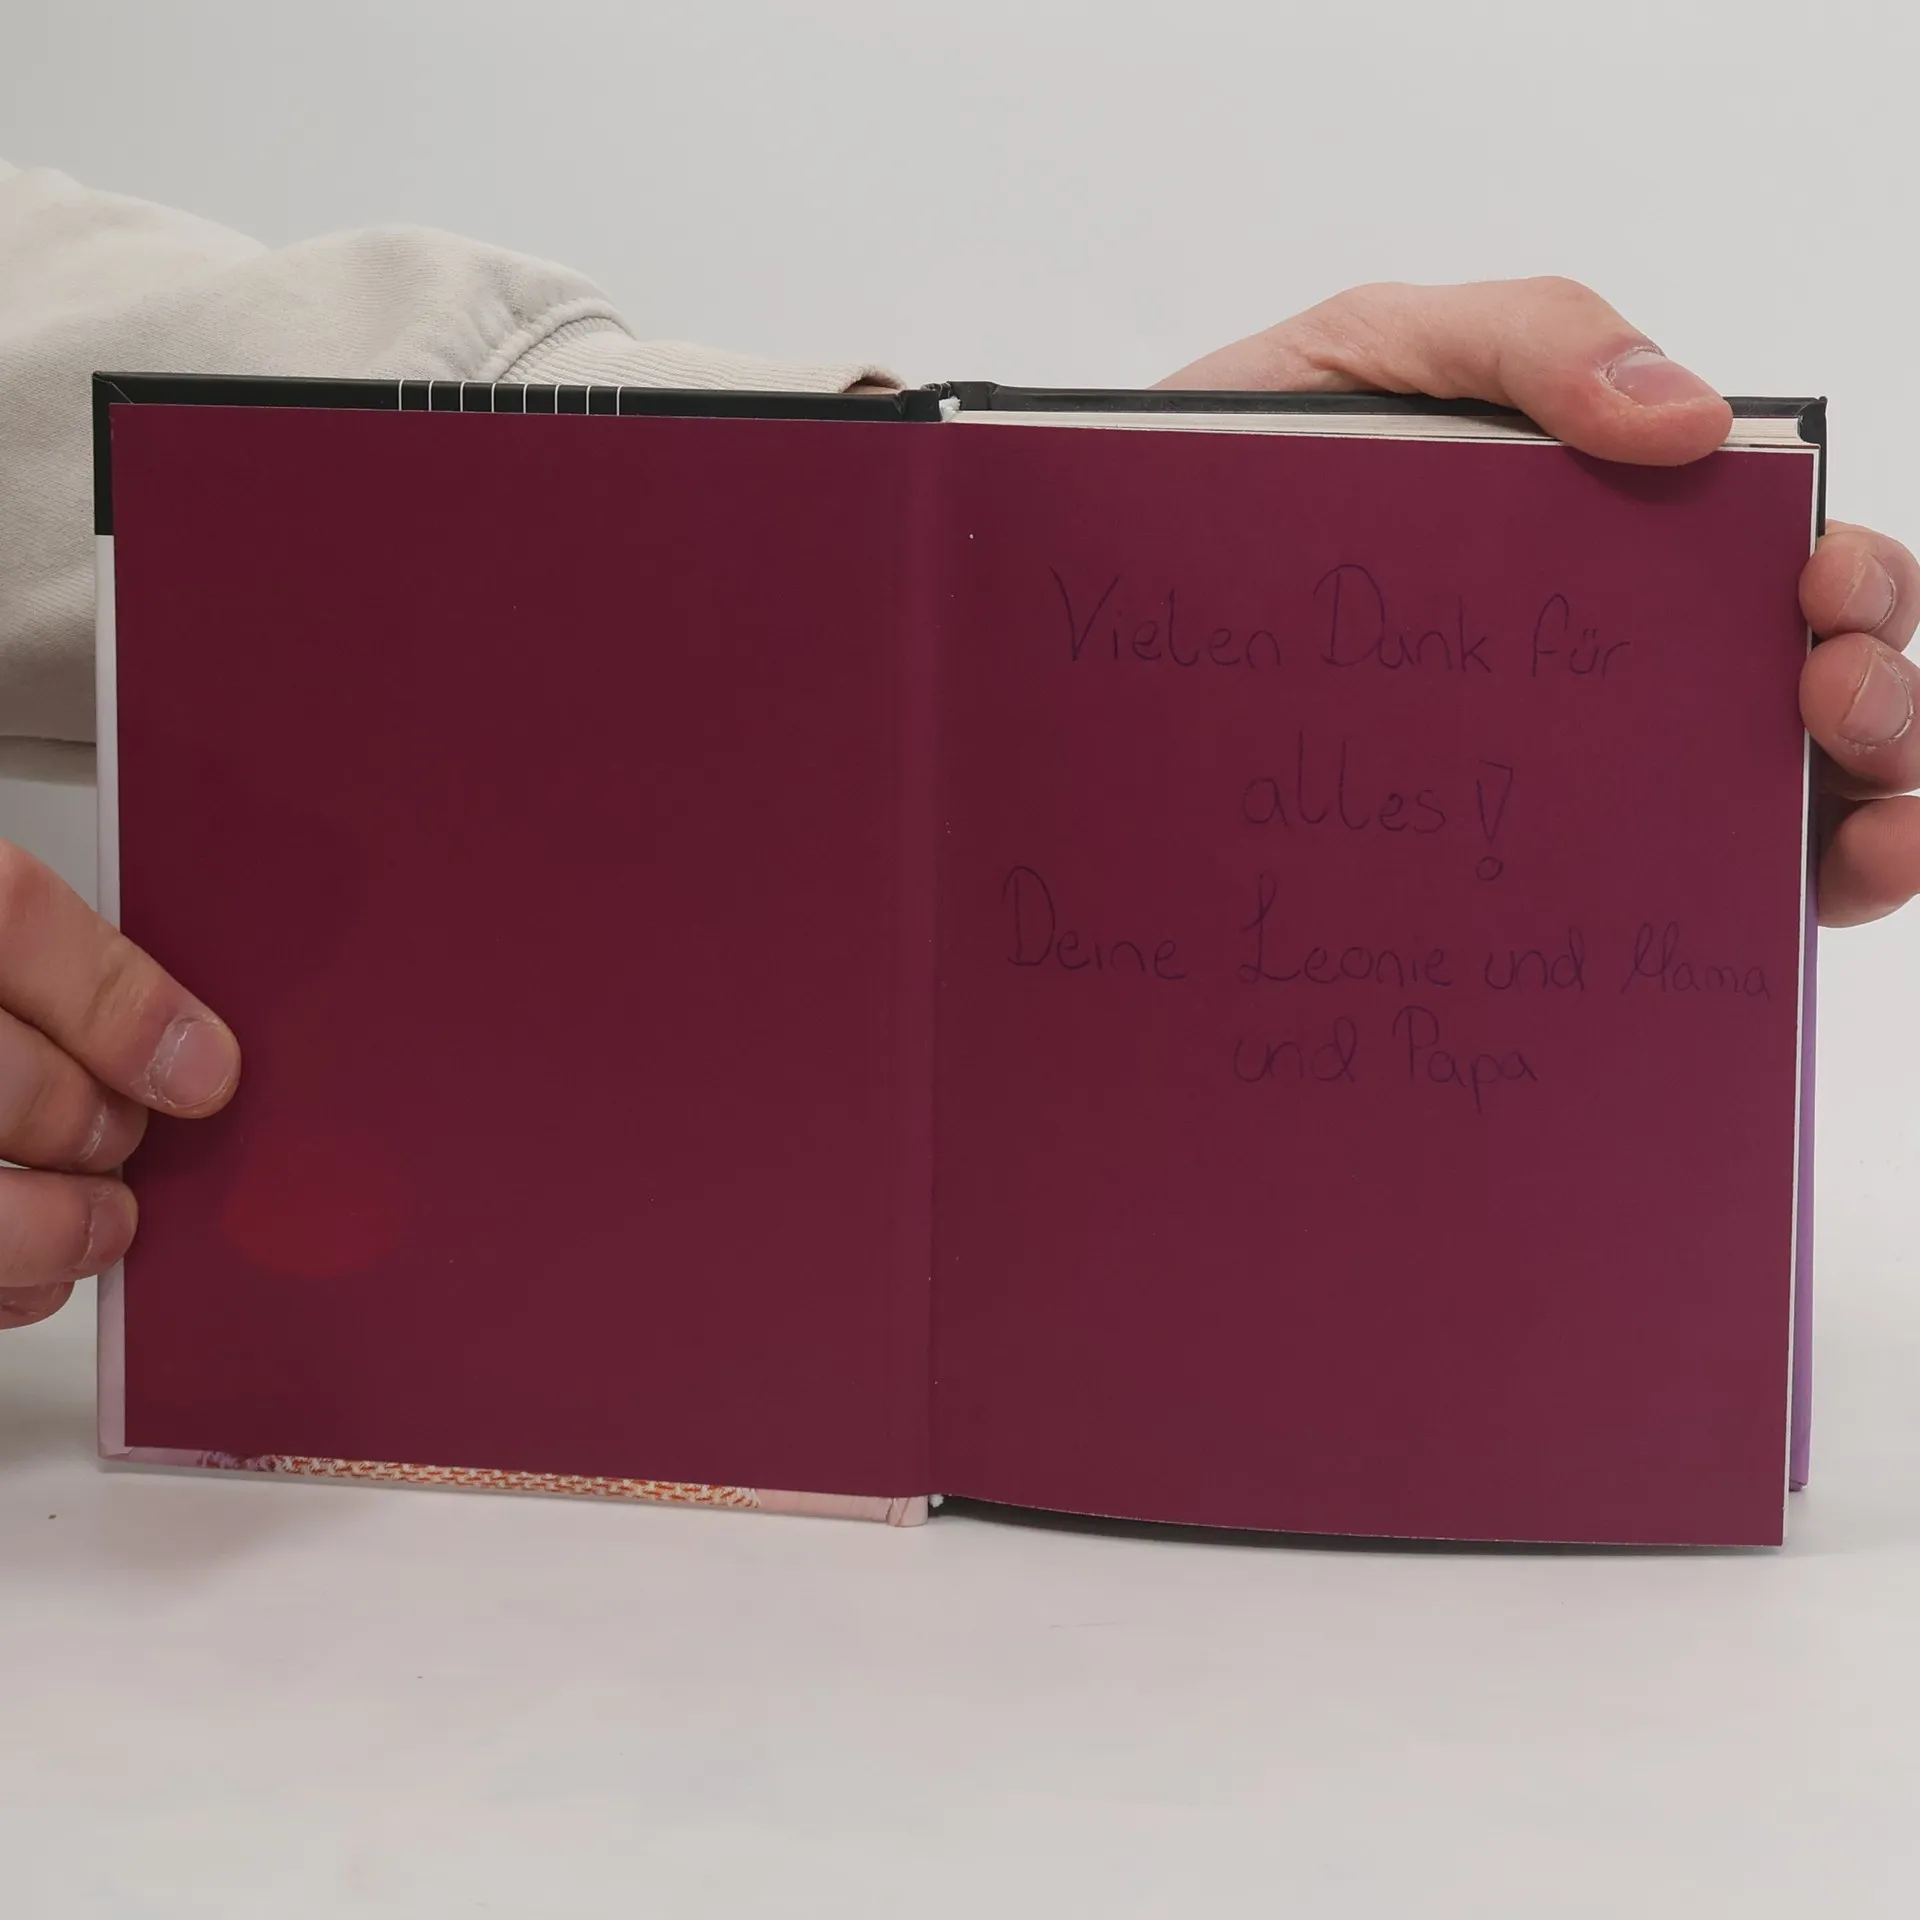 Vielen Dank für
alles!
Deine Leonie und Mama
und Papa